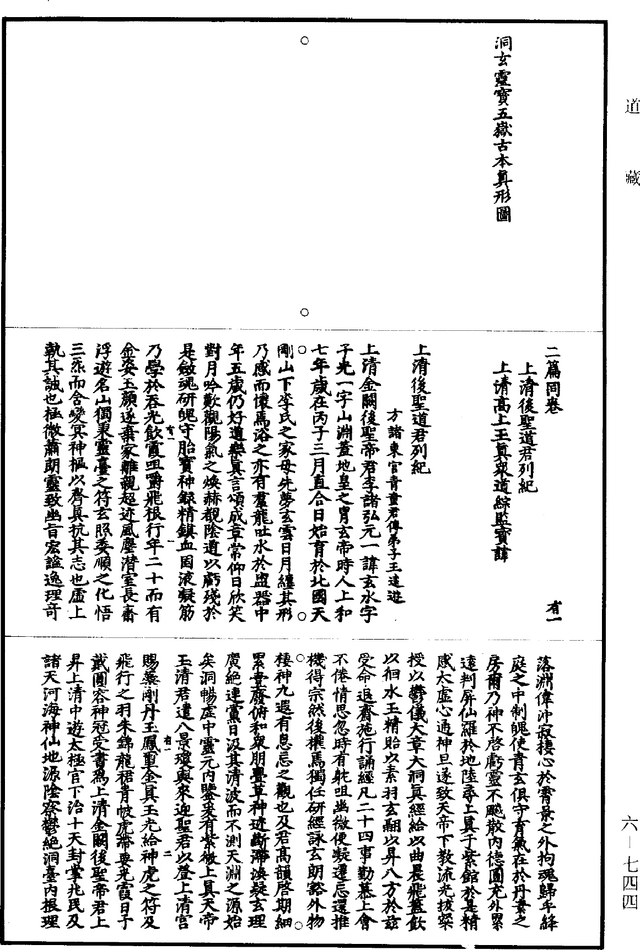 道藏
洞玄靈寶五嶽古本真形圖
二篇同卷
上清後聖道君列紀
上清高上玉真眾道綜監寶諱
有一
上清後聖道君列紀
方諸東宮青童君傳弟子王遠遊
上清金闕後聖帝君李諱弘元一諱玄水字
子光一字山淵蓋地皇之胄玄帝時人上和
七年歲在丙子三月直合日始育於北國天
剛山下李氏之家母先夢玄雲日月纏其形
乃感而懷焉浴之亦有羣龍吐水於盥器中
年五歲仍好道樂真言頌成章常仰日欣笑
對月吟歎觀陽氣之煥赫覩陰道以虧殘於
是斂魂研魄守胎寶神錄精鎮血固液凝筋
乃學於吞光飲霞咀嚼飛根行年二十而有
金姿玉顏遂棄家離親超迹風塵潛室長齋
浮遊名山獨秉靈臺之符玄照委順之化悟
三炁而含變冥神樞以齊真抗其志也虛上
執其誠也極微蕭朗靈致幽音宏謐逸理奇
落淵偉沖寂棲心於霄景之外拘魂歸乎絳
庭之中制魄使青玄俱守育氣在於丹素之
房爾乃神不啓虧靈不颺散內德圓充外累
遠判屏仙羅於地陸奉上真于紫館於是精
感太虛心通神旦遂致天帝下教流光拔粲
授以鬱儀大章大洞真經給以曲晨飛蓋飲
以徊水玉精貽以素羽玄翮以昇八方於茲
受命退齋施行誦經凡二十四事勤慕上會
不倦情思忽時有毗咀幽微便凝遺忘還推
機得宗然後攏馬獨任研經詠玄朗豁外物
棲神九遐有息忘之觀也及君高韻啓期細
累豈廢俯和眾朋疊草神迹斷滯渙凝玄理
廣絕連黨日汲其清波而不測天淵之源始
矣洞暢虛中靈元內鑒爰有紫微上真天帝
玉清君遣八景瓊輿來迎聖君以登上清宮
賜藥剛丹玉鳳璽金真玉光給神虎之符及
飛行之羽朱錦龍裙青帔虎帶要光霞日子
戴圓容神冠受書為上清金闕後聖帝君上
昇上清中遊太極宮下治十天封掌兆民及
諸天河海神仙地源陰察鬱絕洞臺內根理
六－七四四